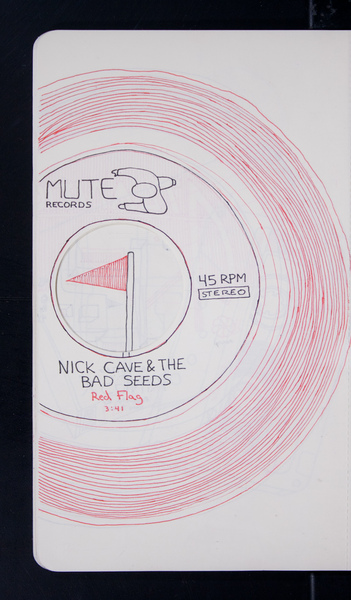 MUTE
RECORDS
45 RPM
STEREO
NICK CAVE & THE
BAD SEEDS
Red Flag
3:41